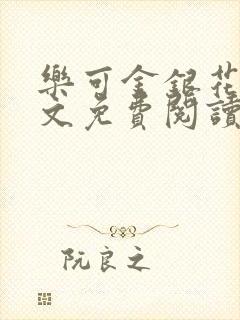 樂可金銀花
文免費閱讀
阮良之